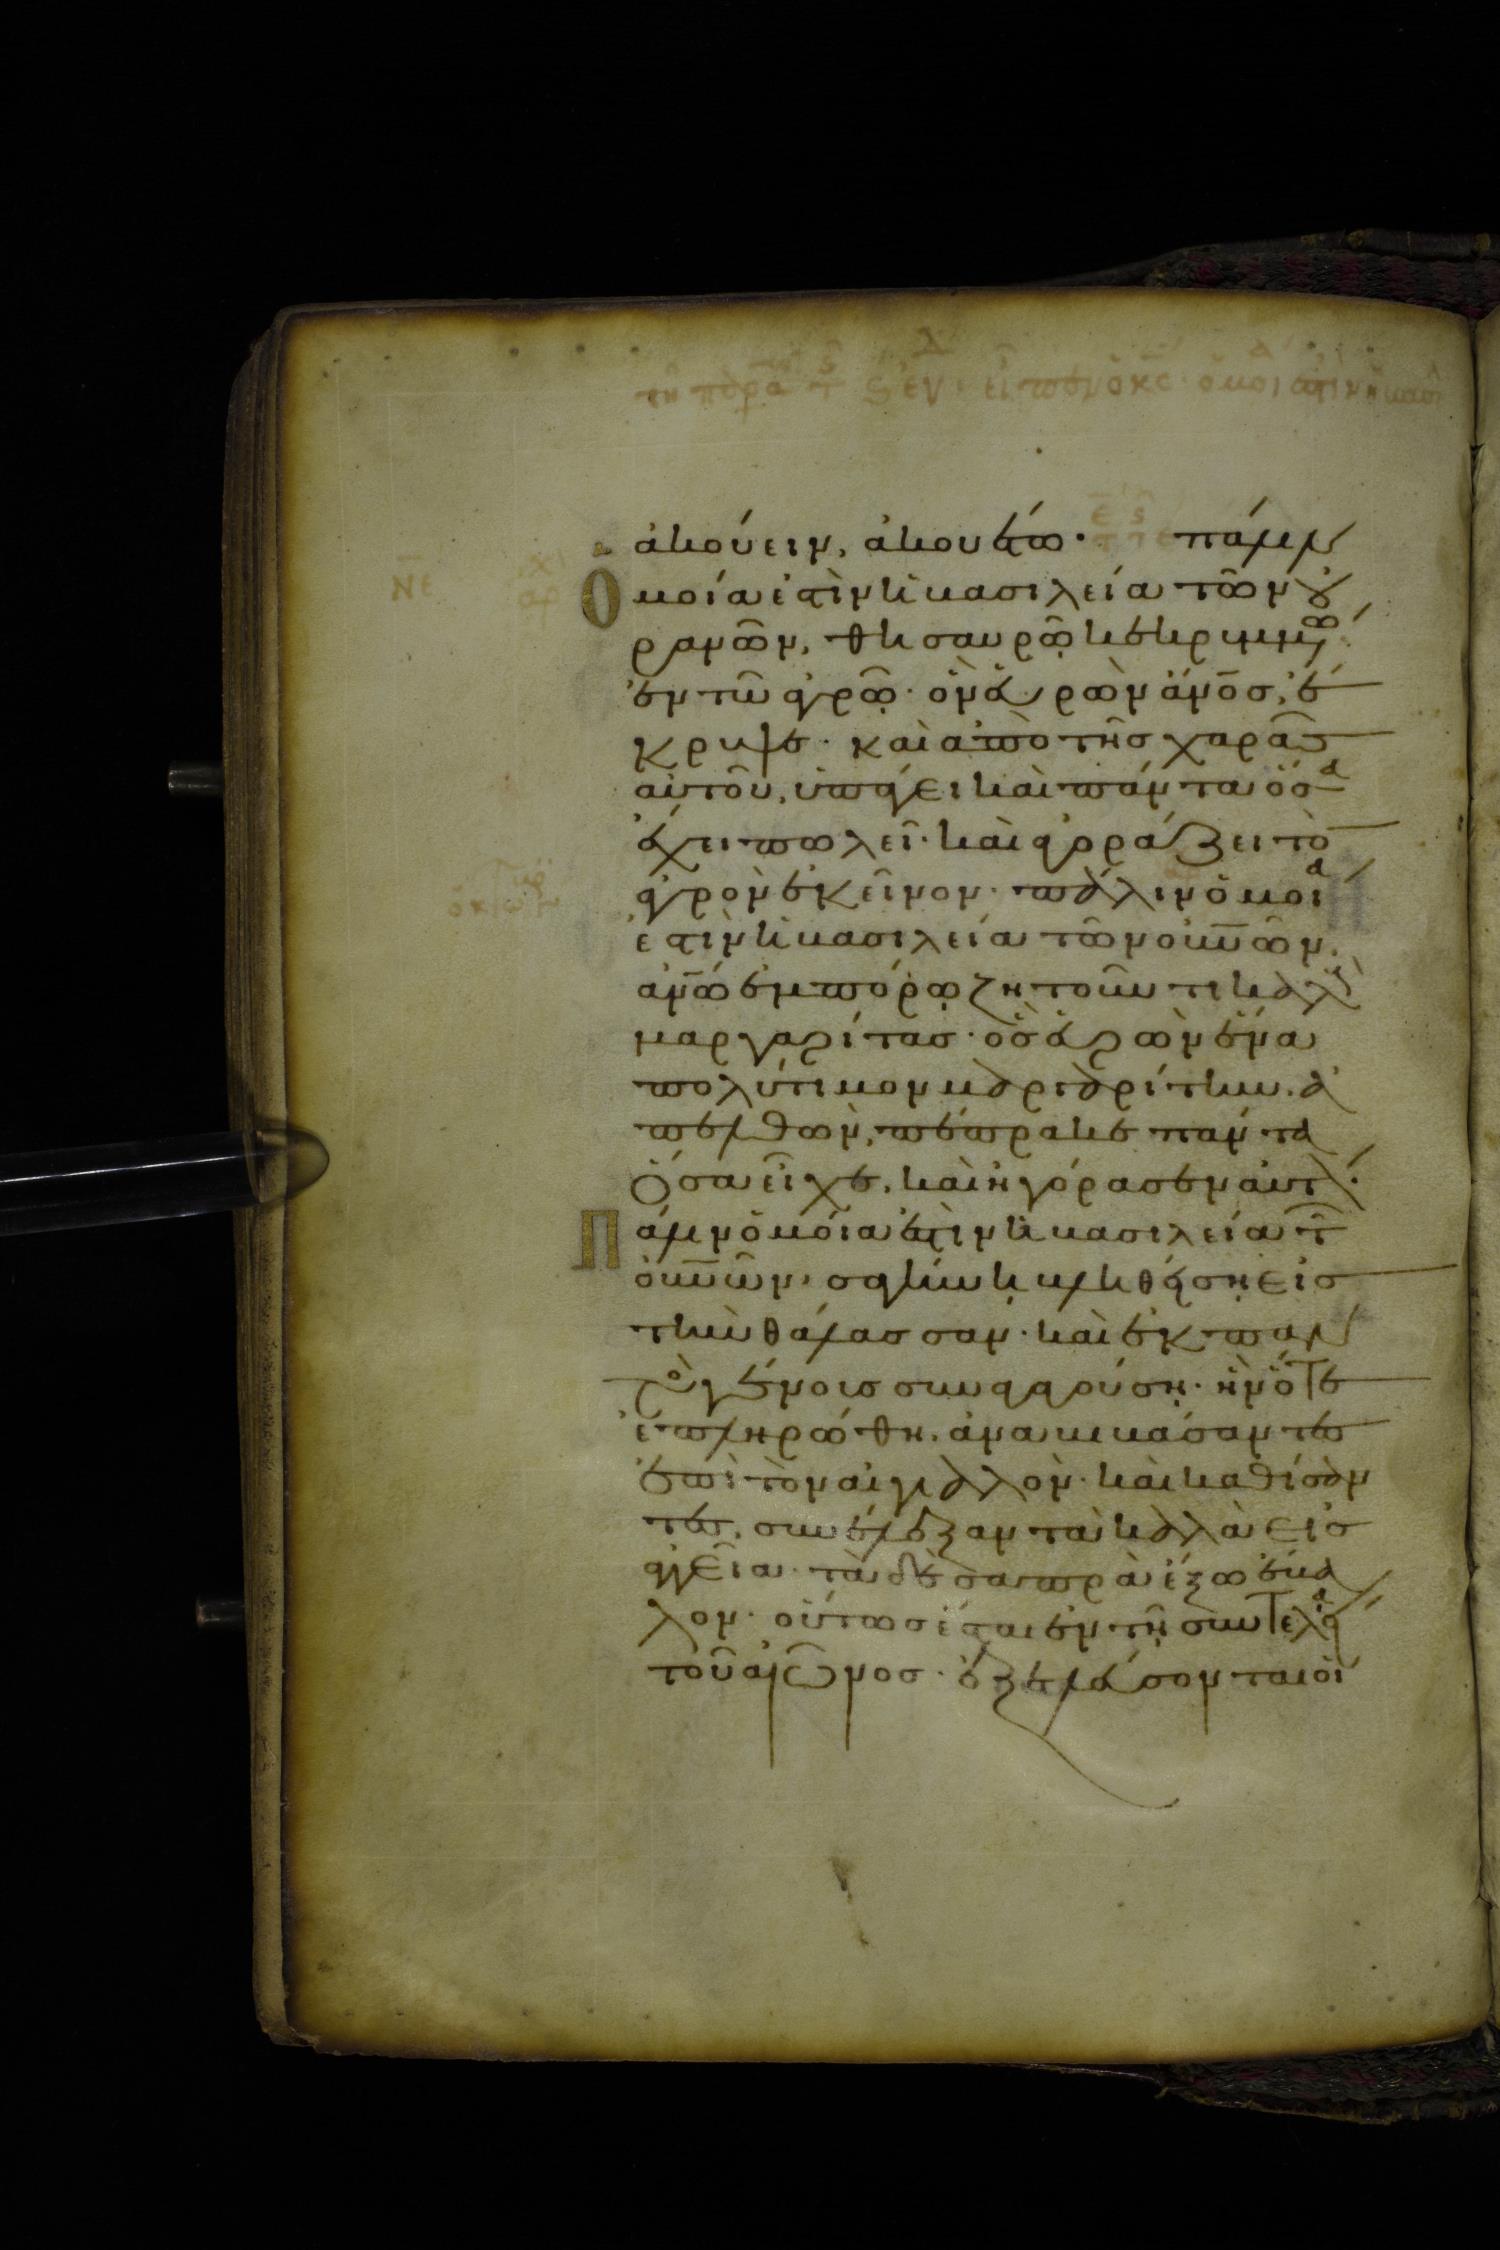 ἀκούειν, ἀκουέτω· πάλιν
Ὁμοία ἐστὶν ἡ βασιλεία τῶν οὐ
ρανῶν, θησαυρῶ κεκρυμμένω
ἐν τῶ ἀγρῶ· ὃν εὑρὼν ἄνος, ἔ
κρυψε· καὶ ἀπὸ τῆς χαρᾶς
αὐτοῦ, ὑπάγει καὶ πάντα ὅσα
ἔχει πωλεῖ· καὶ ἀγοράζει τὸ
ἀγρὸν ἐκεῖνον· πάλιν ὁμοία
ἐστὶν ἡ βασιλεία τῶν οὐνῶν,
ἀνω ἐμπόρω ζητοῦντι καλοὺς
μαργαρίτας· ὃς εὑρὼν ἕνα
πολύτιμον μαργαρίτην, ἀ
πελθὼν, πέπρακε πάντα
ὅσα εἶχε, καὶ ἠγόρασεν αὐτόν·
Πάλιν ὁμοία ἐστὶν ἡ βασιλεία τῶν
οὐνῶν, σαγήνη βληθείση εἰς
τὴν θάλασσαν· καὶ ἐκ παν
τὸς γένους συναγαγούση· ἣν ὅτε
ἐπληρώθη, ἀναβιβάσαντες
ἐπὶ τὸν αἰγιαλὸν· καὶ καθίσαν
τες, συνέλεξαν τὰ καλὰ εἰς
ἀγγεῖα· τὰ δὲ σαπρὰ ἔξω ἔβα
λον· οὕτως ἔσται ἐν τῆ συντελεία
τοῦ αἰῶνος· ἐξελεύσονται οἱ